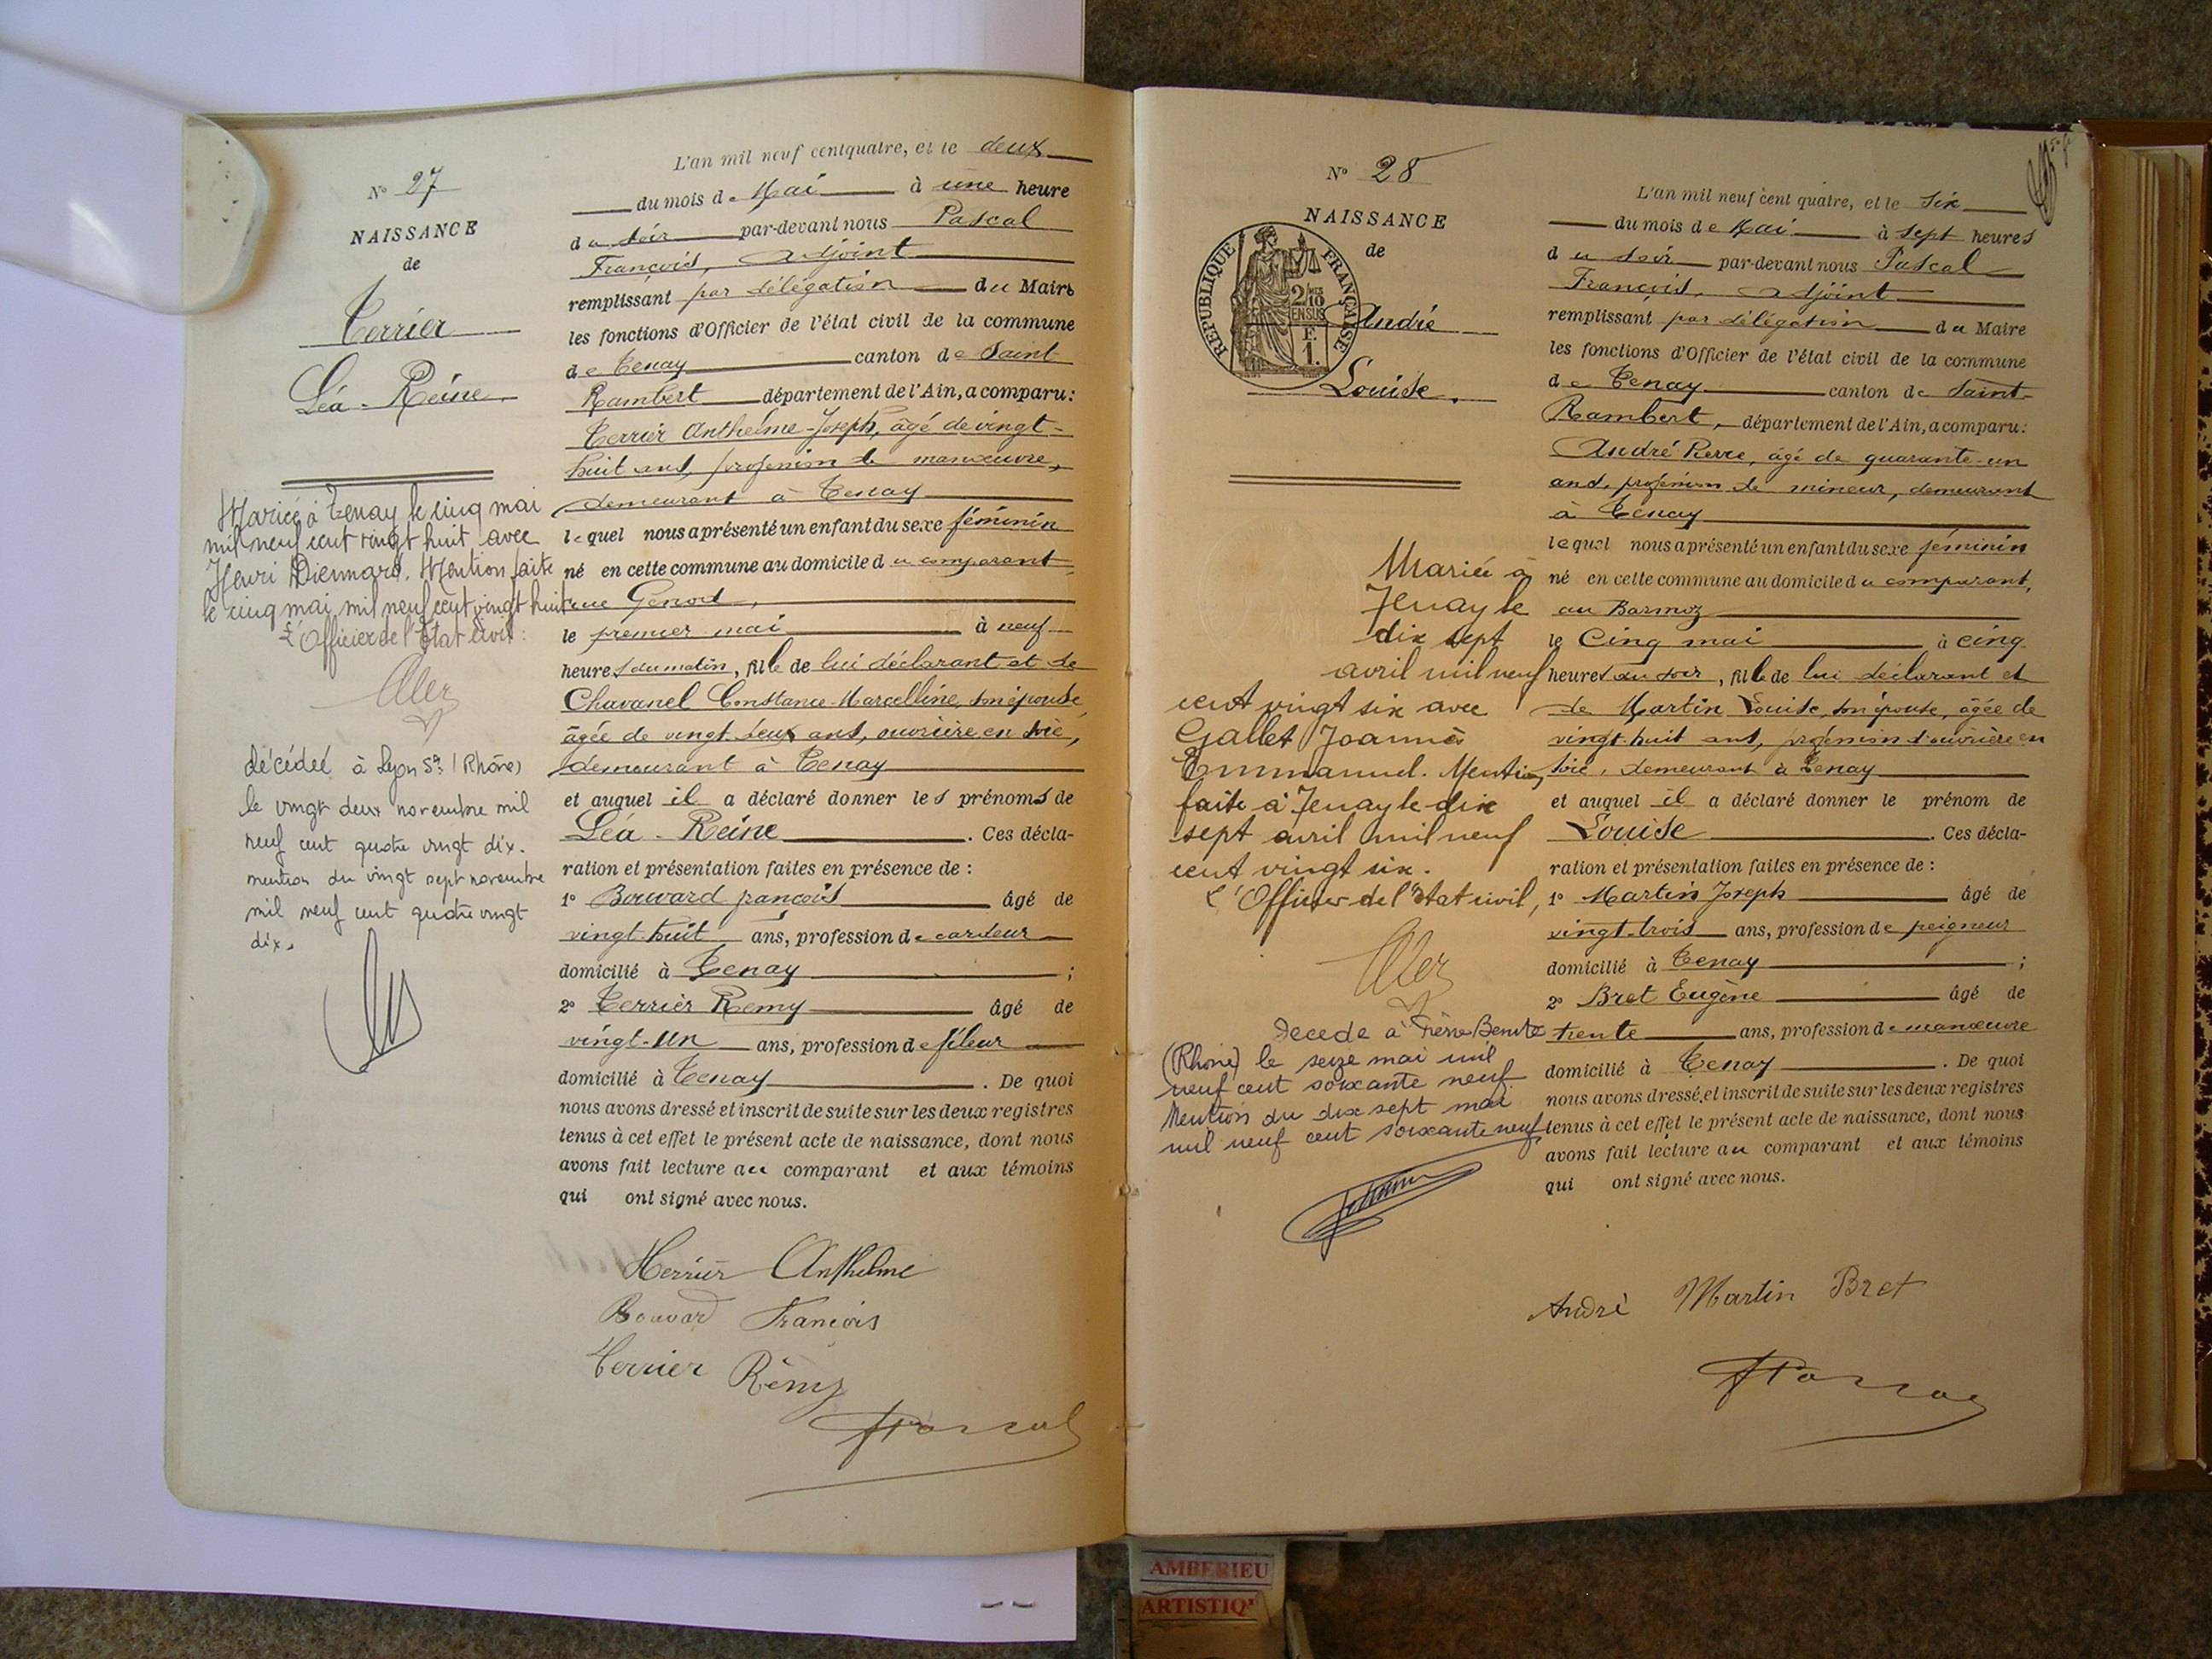 N° 27
NAISSANCE
de
Terrier
Léa-Reine
Mariée à Tenay le cinq mai
mil neuf cent vingt huit avec
Henri Diennard. Mention faite
le cinq mai mil neuf cent vingt huit
L'Officier de l'Etat civil:
décédée à Lyon 5e (Rhône)
le vingt deux novembre mil
neuf cent quatre vingt dix.
mention du vingt sept novembre
mil neuf cent quatre vingt
dix.
L'an mil neuf cent quatre, et le deux
du mois de Mai à une heure
du soir par-devant nous Pascal
François, adjoint
remplissant par délégation du Maire
les fonctions d'Officier de l'état civil de la commune
de Tenay canton de Saint
Rambert département de l'Ain, a comparu:
Terrier Anthelme-Joseph, âgé de vingt-
huit ans, profession de manœuvre,
demeurant à Tenay
lequel nous a présenté un enfant du sexe féminin
né en cette commune au domicile du comparant,
rue Genod,
le premier mai à neuf
heures du matin, fille de lui déclarant et de
Chavanel Constance-Marcelline, son épouse,
âgée de vingt-deux ans, ouvrière en soie,
demeurant à Tenay
et auquel il a déclaré donner les prénoms de
Léa-Reine. Ces décla-
ration et présentation faites en présence de :
1° Bouvard françois âgé de
vingt-huit ans, profession de cardeur
domicilié à Tenay ;
2° Terrier Remy âgé de
vingt-un ans, profession de fileur
domicilié à Tenay. De quoi
nous avons dressé et inscrit de suite sur les deux registres
tenus à cet effet le présent acte de naissance, dont nous
avons fait lecture au comparant et aux témoins
qui ont signé avec nous.
Terrier Anthelme
Bouvard François
Terrier Rémy
Pascal
N° 28
NAISSANCE
de
RÉPUBLIQUE FRANÇAISE
2/10
EN SUS
F.
1.
André
Louise.
Mariée à
Tenay le
dix sept
avril mil neuf
cent vingt six avec
Gallet Joannès
Emmanuel. Mention
faite à Tenay le dix
sept avril mil neuf
cent vingt six.
L'Officier de l'Etat civil,
Decede à Pierre Benite
(Rhône) le seize mai mil
neuf cent soixante neuf
Mention du dix sept mai
mil neuf cent soixante neuf
L'an mil neuf cent quatre, et le six
du mois de Mai à sept heures
du soir par-devant nous Pascal
François, adjoint
remplissant par délégation du Maire
les fonctions d'Officier de l'état civil de la commune
de Tenay canton de Saint-
Rambert, département de l'Ain, a comparu:
André Pierre, âgé de quarante-un
ans, profession de mineur, demeurant
à Tenay
lequel nous a présenté un enfant du sexe féminin
né en cette commune au domicile du comparant,
au Barmoz
le Cinq mai à cinq
heures du soir, fille de lui déclarant et
de Martin Louise, son épouse, âgée de
vingt-huit ans, profession d'ouvrière en
soie, demeurant à Tenay
et auquel il a déclaré donner le prénom de
Louise. Ces décla-
ration et présentation faites en présence de :
1° Martin Joseph âgé de
vingt-trois ans, profession de peigneur
domicilié à Tenay ;
2° Bret Eugène âgé de
trente ans, profession de manœuvre
domicilié à Tenay. De quoi
nous avons dressé et inscrit de suite sur les deux registres
tenus à cet effet le présent acte de naissance, dont nous
avons fait lecture au comparant et aux témoins
qui ont signé avec nous.
André Martin Bret
Pascal
AMBERIEU
ARTISTIQ